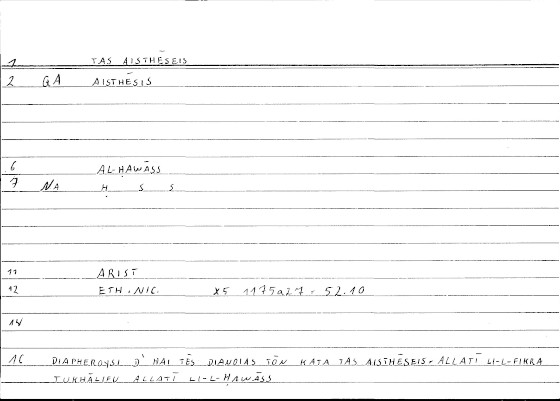 1 TAS AISTHĒSEIS
2 GA AISTHĒSIS
6 AL-ḤAWĀSS
7 NA Ḥ S S
11 ARIST
12 ETH. NIC. X5 1175a27 = 52.10
14
16 DIAPHEROYSI D' HAI TĒS DIANOIAS TŌN KATA TAS AISTHĒSEIS = ALLATĪ LI-L-FIKRA
TUKHĀLIFU ALLATĪ LI-L-ḤAWĀSS